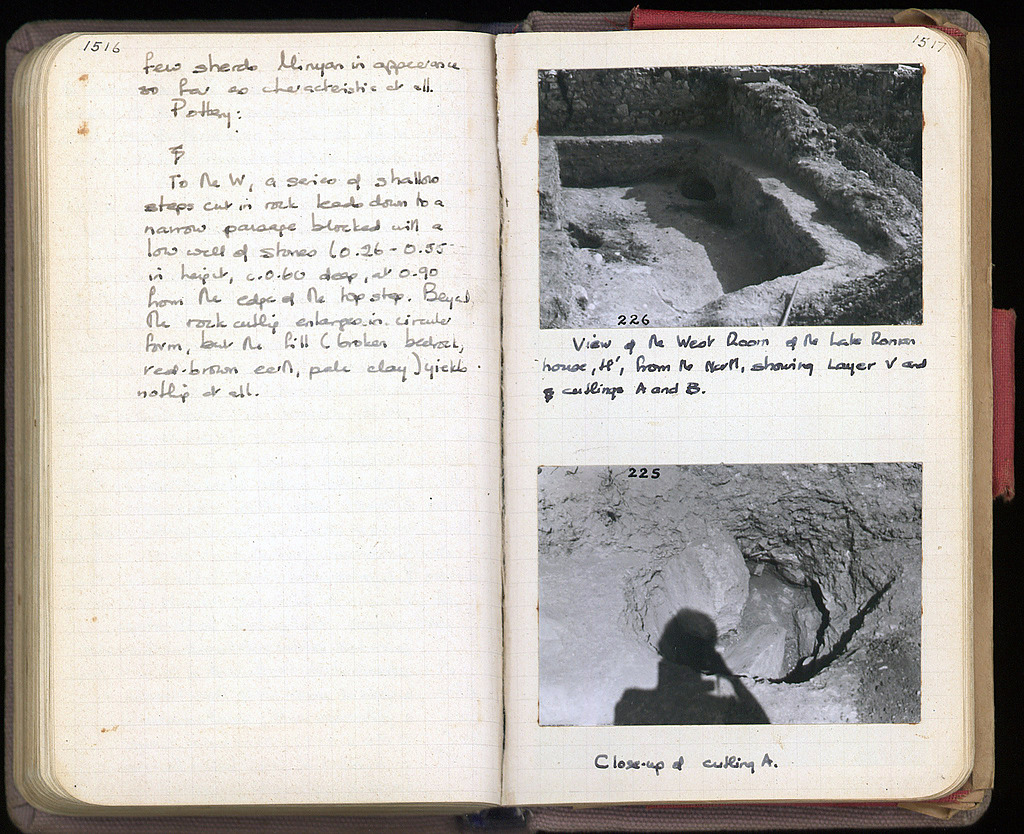 1516
few sherds Minyan in appearance
so far as characteristic at all.
Pottery:
To the W, a series of shallow
steps cut in rock leads down to a
narrow passage blocked with a
low wall of stones (0.26 - 0.55
in height, c. 0.60 deep, at 0.90
from the edge of the top step. Beyond
the rock cutting enlarges in circular
form, but the fill (broken bedrock,
red-brown earth, pale clay) yields
nothing at all.
1517
226
View of the West Room of the Late Roman
house, H', from the North, showing Layer V and
cuttings A and B.
225
Close-up of cutting A.